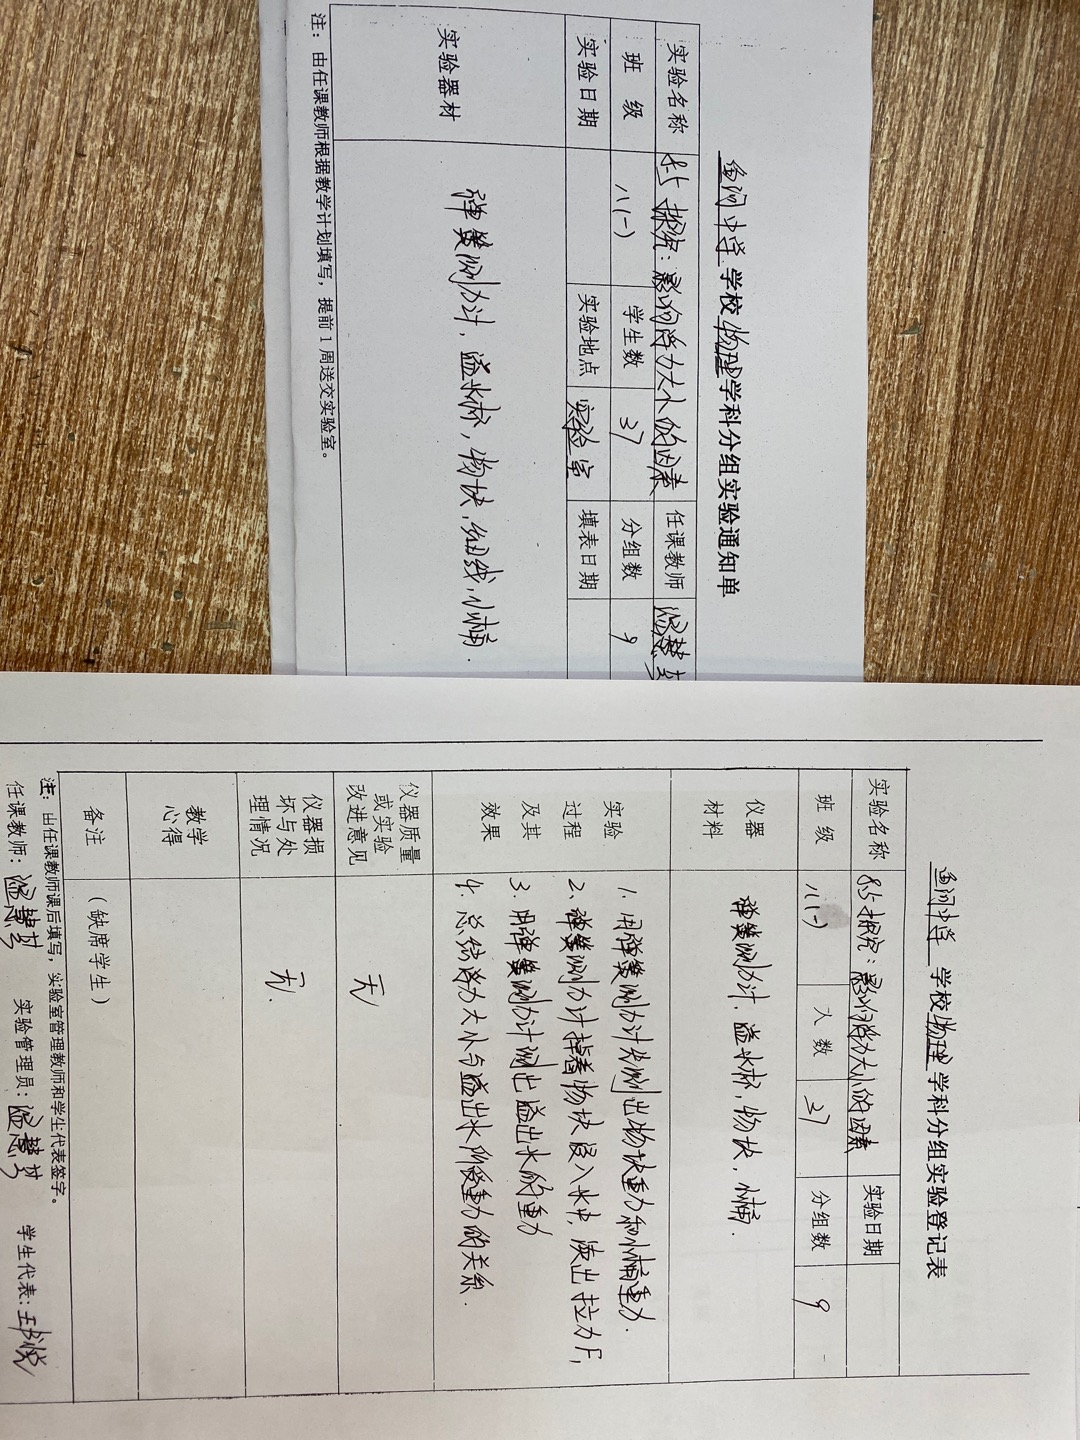 鱼河中学 学校 物理 学科分组实验通知单
实验名称 8.5 探究：影响浮力大小的因素 任课教师
班 级 八(一) 学生数 37 分组数 9
实验日期 实验地点 实验室 填表日期
实验器材 弹簧测力计，溢水杯，物块，细线，小桶．
注：由任课教师根据教学计划填写，提前1周送交实验室。
鱼河中学 学校 物理 学科分组实验登记表
实验名称 8.5 探究：影响浮力大小的因素 实验日期
班 级 八(一) 人 数 37 分组数 9
仪器材料 弹簧测力计，溢水杯，物块，小桶．
实验过程及其效果
1. 用弹簧测力计先测出物块重力和小桶重力．
2、弹簧测力计掉着物块浸入水中，读出拉力F，
3. 用弹簧测力计测出溢出水的重力
4. 总结浮力大小与溢出水所受重力的关系．
仪器质量或实验改进意见 无
仪器损坏与处理情况 无．
教学心得
备注 （缺席学生）
注：由任课教师课后填写，实验室管理教师和学生代表签字。
任课教师： 实验管理员： 学生代表：